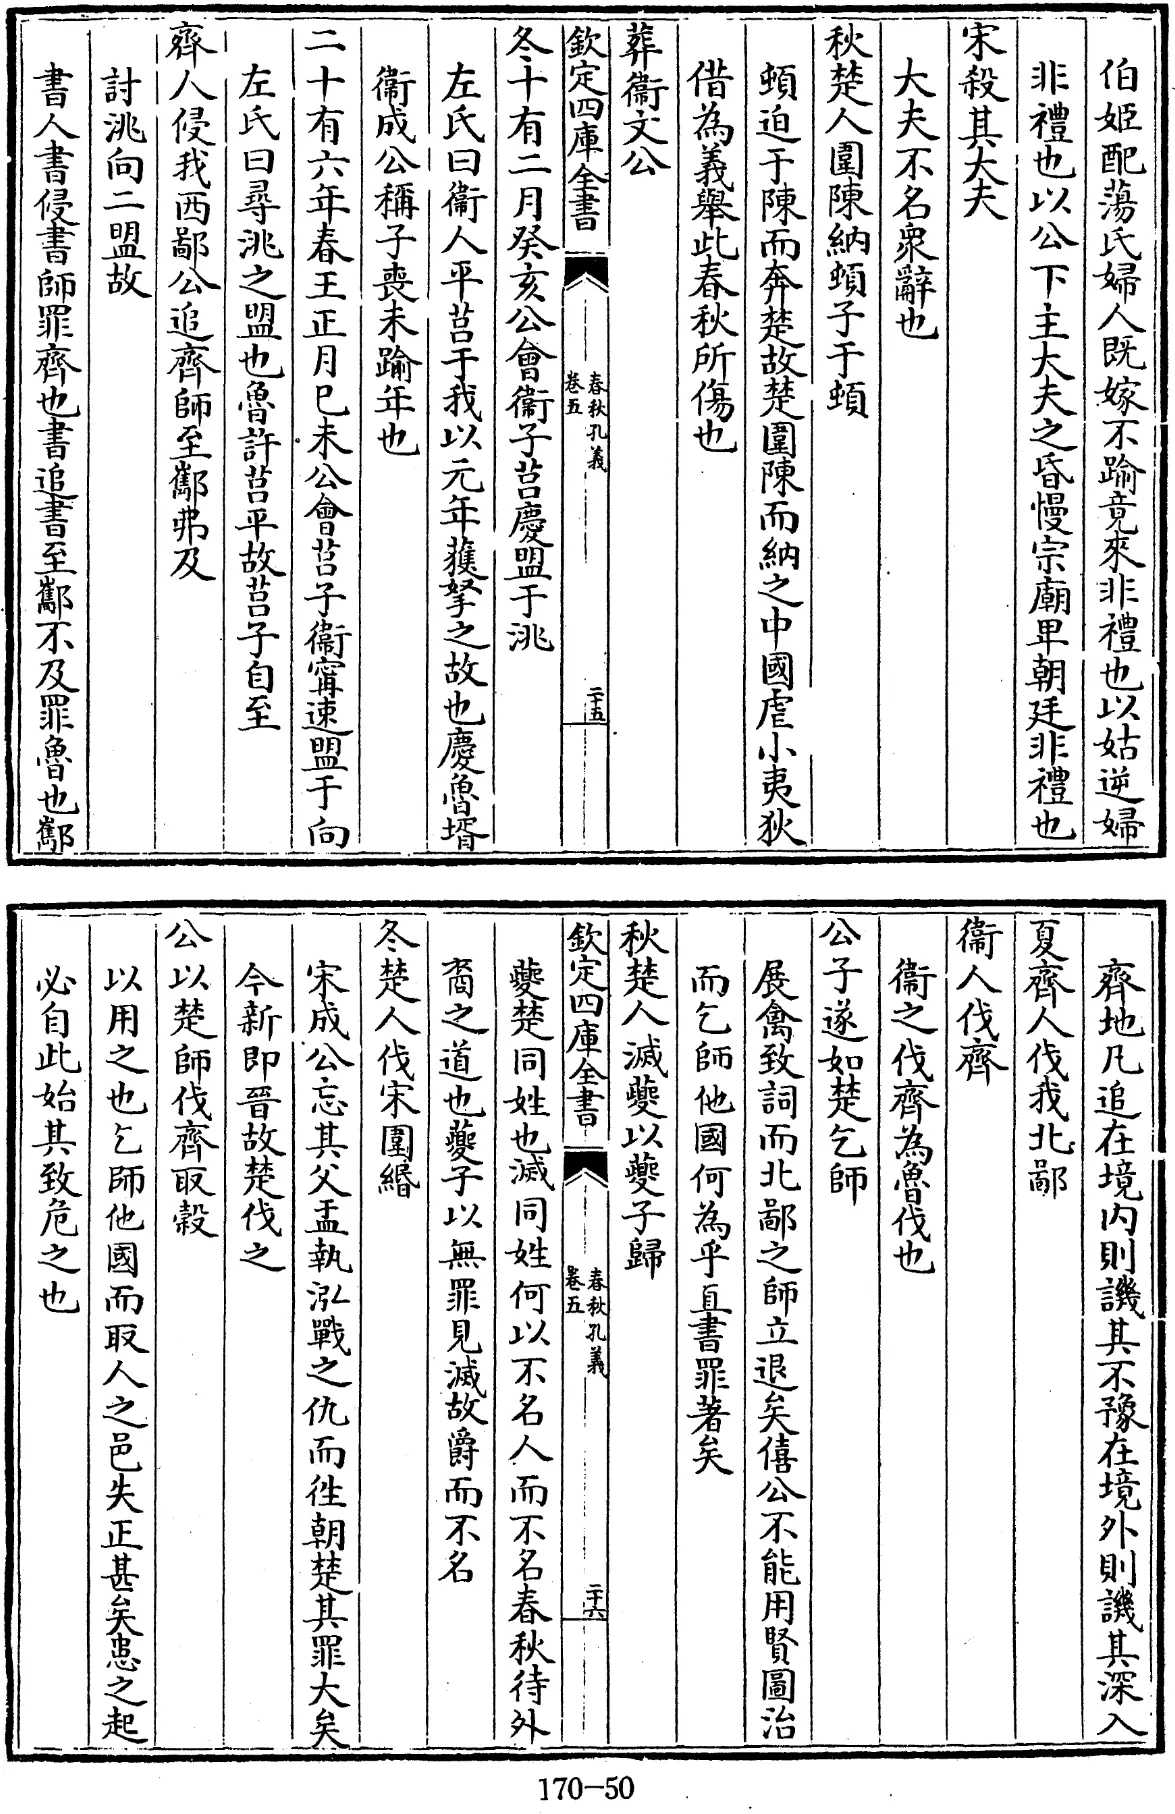 伯姬配蕩氏婦人既嫁不踰竟來非禮也以姑逆婦
非禮也以公下主大夫之昏慢宗廟卑朝廷非禮也
宋殺其大夫
大夫不名衆辭也
秋楚人圍陳納頓子于頓
頓迫于陳而奔楚故楚圍陳而納之中國虐小夷狄
借為義舉此春秋所傷也
葬衞文公
欽定四庫全書
春秋孔義
卷五
二十五
冬十有二月癸亥公會衞子莒慶盟于洮
左氏曰衞人平莒于我以元年獲拏之故也慶魯壻
衞成公稱子喪未踰年也
二十有六年春王正月己未公會莒子衞甯速盟于向
左氏曰尋洮之盟也魯許莒平故莒子自至
齊人侵我西鄙公追齊師至酅弗及
討洮向二盟故
書人書侵書師罪齊也書追書至酅不及罪魯也酅
齊地凡追在境内則譏其不豫在境外則譏其深入
夏齊人伐我北鄙
衞人伐齊
衞之伐齊為魯伐也
公子遂如楚乞師
展禽致詞而北鄙之師立退矣僖公不能用賢圖治
而乞師他國何為乎直書罪著矣
秋楚人滅夔以夔子歸
欽定四庫全書
春秋孔義
卷五
二十六
夔楚同姓也滅同姓何以不名人而不名春秋待外
裔之道也夔子以無罪見滅故爵而不名
冬楚人伐宋圍緡
宋成公忘其父盂執泓戰之仇而徃朝楚其罪大矣
今新即晉故楚伐之
公以楚師伐齊取穀
以用之也乞師他國而取人之邑失正甚矣患之起
必自此始其致危之也
170-50